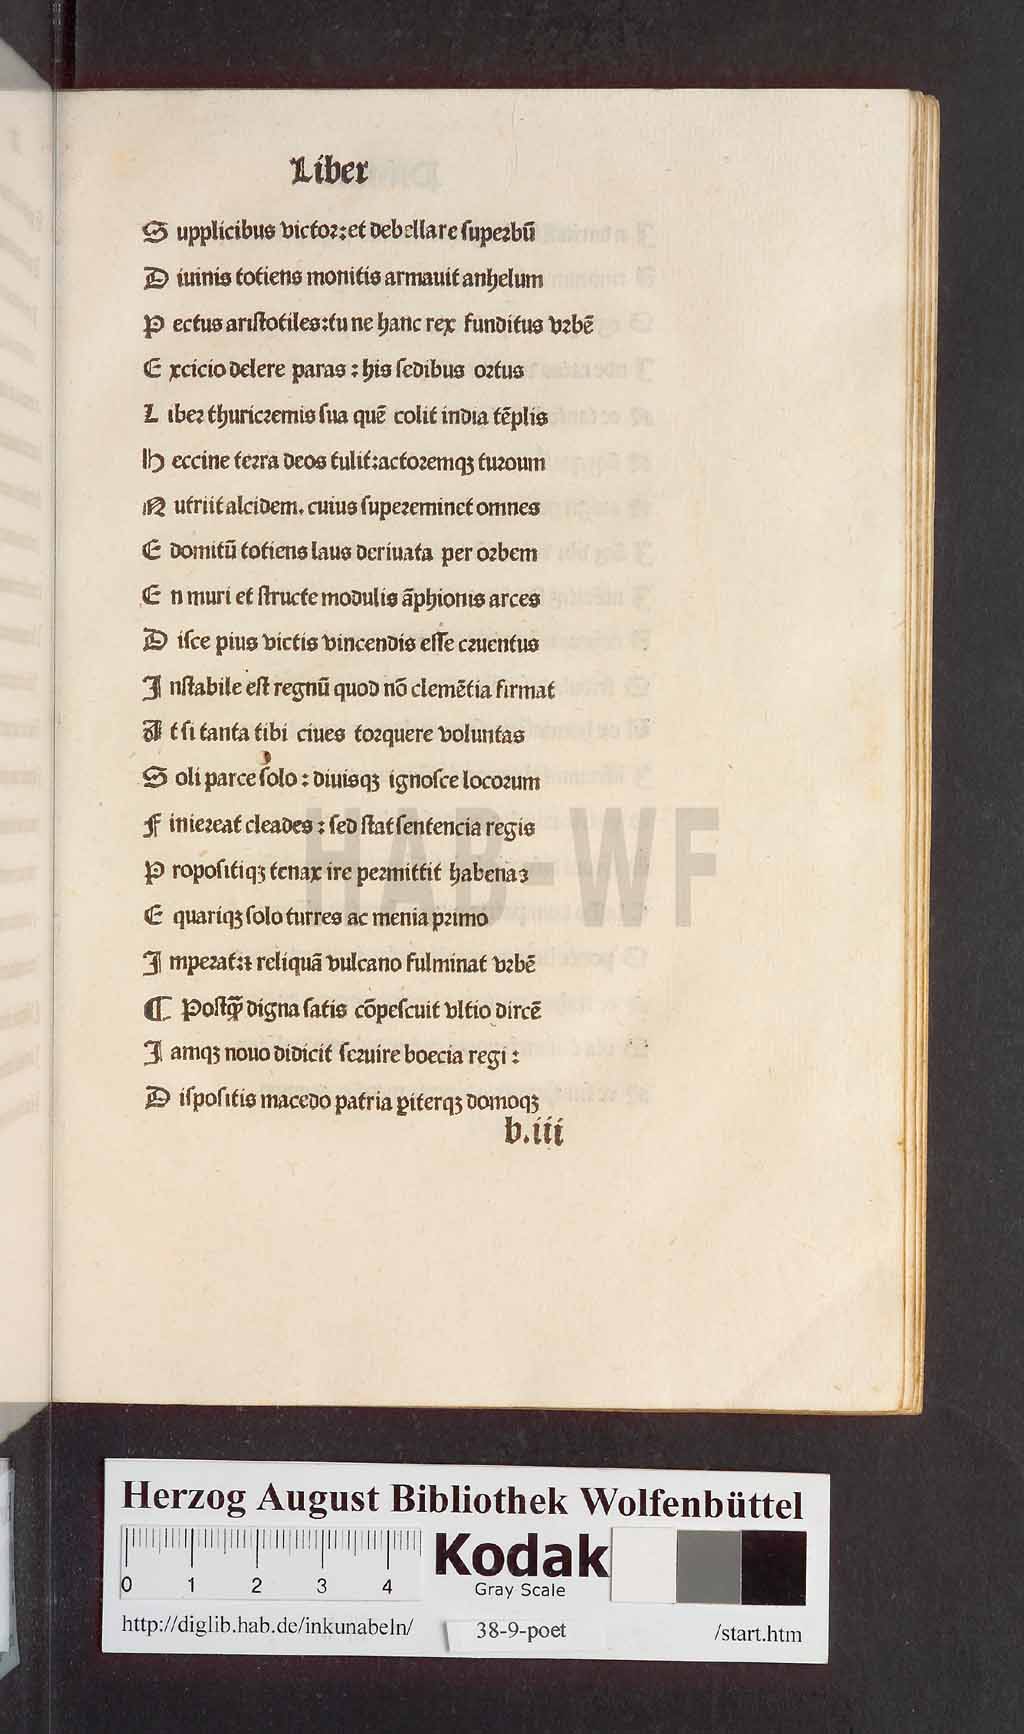 Liber
S upplicibus victor: et debellare superbū
D iuinis totiens monitis armauit anhelum
P ectus aristotiles: tu ne hanc rex funditus vrbē
E xcicio delere paras : his sedibus ortus
L iber thuricremis sua quē colit india tēplis
H eccine terra deos tulit: actoremqꝫ turoum
N utriit alcidem. cuius supereminet omnes
E domitū totiens laus deriuata per orbem
E n muri et structe modulis āphionis arces
D isce pius victis vincendis esse cruentus
I nstabile est regnū quod nō clemētia firmat
A t si tanta tibi ciues torquere voluntas
S oli parce solo : diuisqꝫ ignosce locorum
F iniereat cleades : sed stat sentencia regis
P ropositiqꝫ tenax ire permittit habenaꝫ
E quariqꝫ solo turres ac menia primo
I mperat: ꝛ reliquā vulcano fulminat vrbē
¶ Postꝙ̄ digna satis cōpescuit vltio dircē
I amqꝫ nouo didicit seruire boecia regi :
D ispositis macedo patria ꝑiterqꝫ domoqꝫ
b.iii
HAB-WF
Herzog August Bibliothek Wolfenbüttel
0 1 2 3 4
Kodak
Gray Scale
http://diglib.hab.de/inkunabeln/ 38-9-poet /start.htm